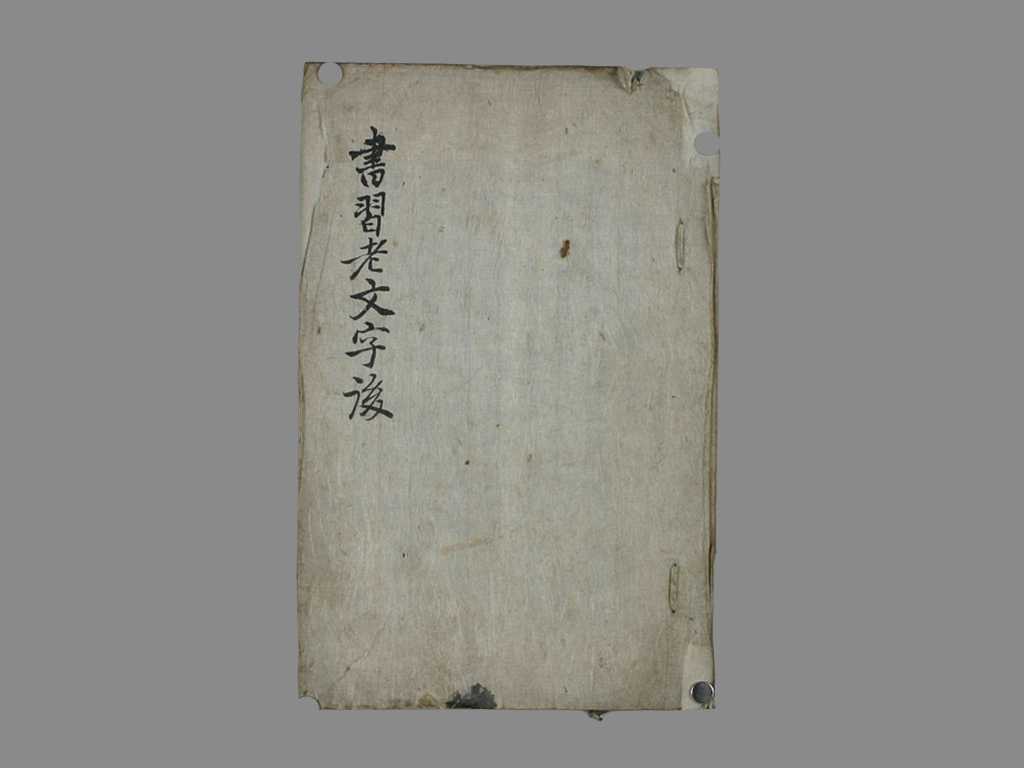 書習老文字後